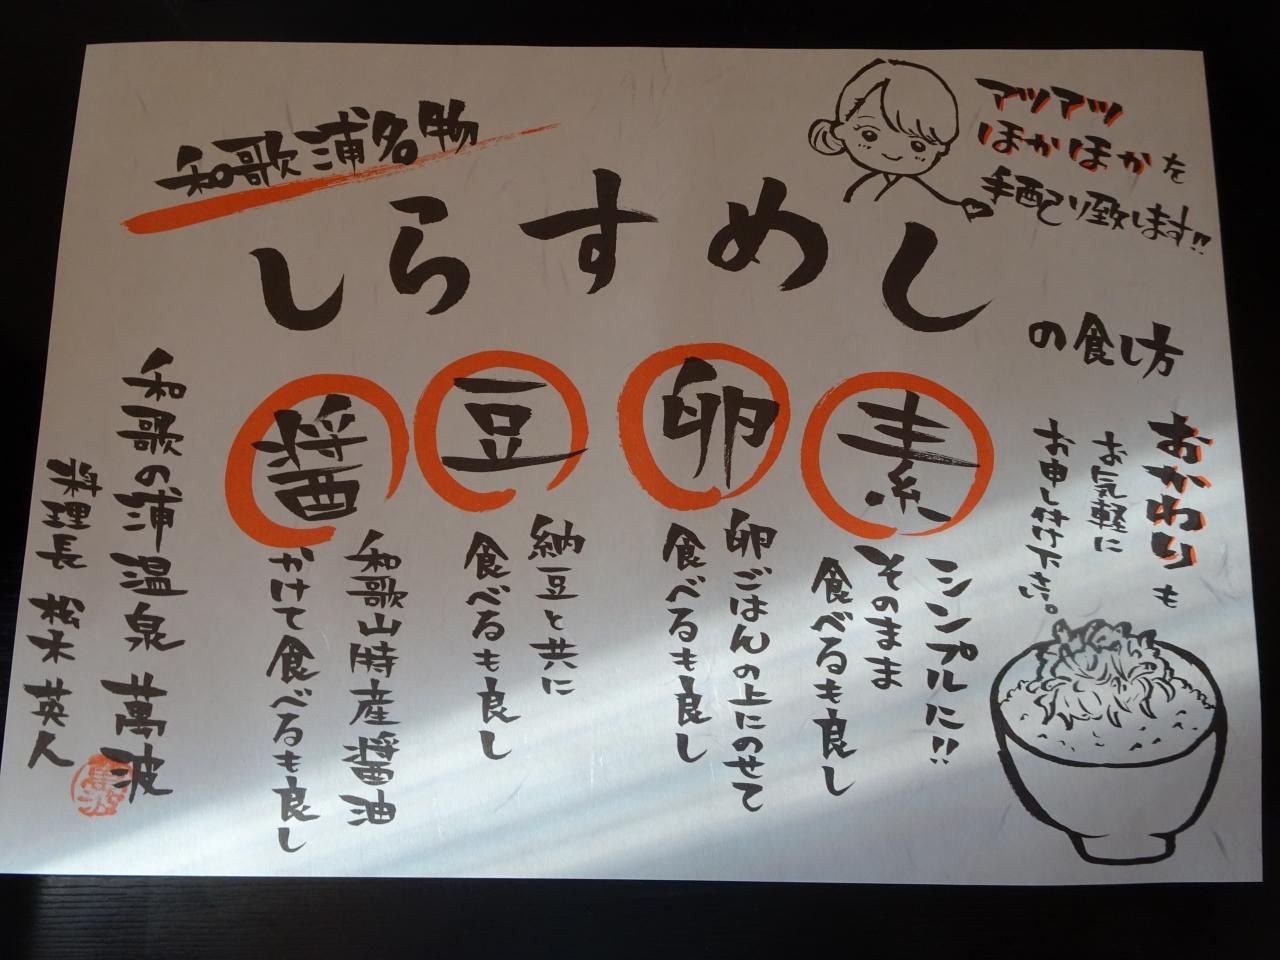 和歌浦名物
しらすめし
の食し方
アツアツ
ほかほかを
手配り致します!!
おかわりも
お気軽に
お申し付け下さい。
素
シンプルに!!
そのまま
食べるも良し
卵
卵ごはんの上にのせて
食べるも良し
豆
納豆と共に
食べるも良し
醤
和歌山特産醤油
かけて食べるも良し
和歌の浦温泉 萬波
料理長 松木 英人